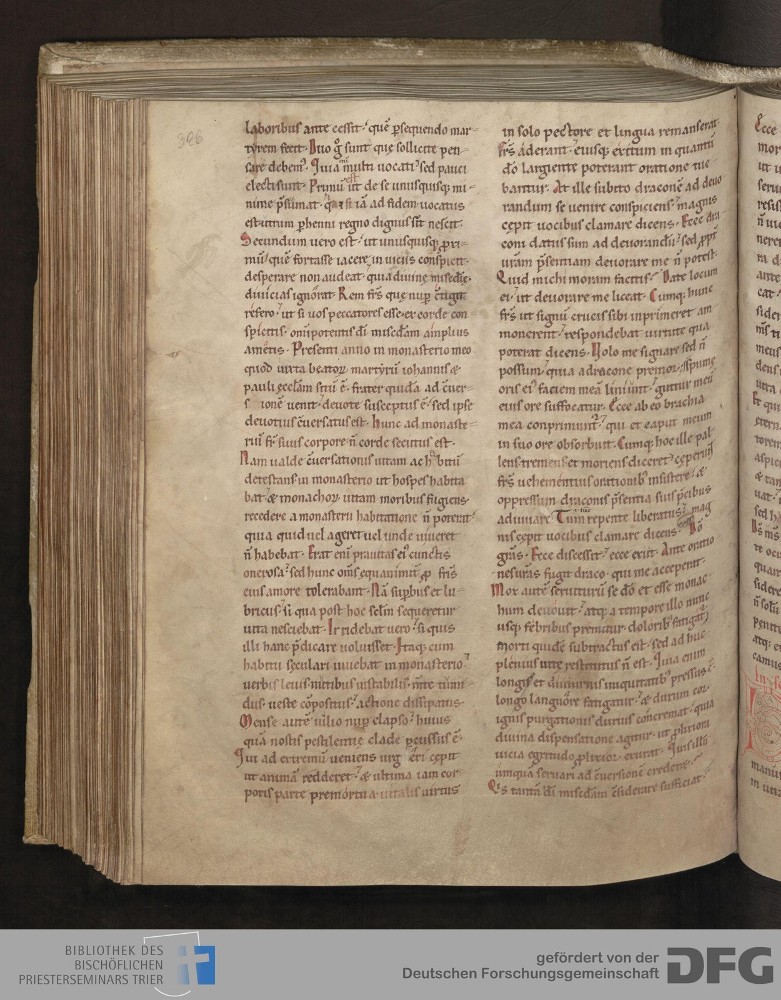 396
laboribus ante cessit. quē ꝑsequendo mar-
tyrem fecit. Duo gͦ sunt quę sollicite pen-
sare debem᷒. Quia multi uocati sed pauci
electi sunt. Primū est ut de se unusquisq; mi-
nime p̄sumat. quia & si iā ad fidem uocatus
est utrum ꝑhenni regno dignus sit nescit.
Secundum uero est. ut unusquisq; ꝓxi-
mū quē fortasse iacere in uiciis conspicit.
desperare non audeat. quia diuinę misc̄dię
diuicias ignorat. Rem frs̄ quę nup̄ c̄tigit
refero. ut si uos peccatores esse ex corde con-
spicitis. omīpotentis dī misc̄dam amplius
ametis. Presenti anno in monasterio meo
quod iuxta beatorū martyrū iohannis &
pauli ęcclam sitū ē. frater quidā ad c̄uer-
s ionē uenit. deuote susceptus ē. sed ipse
deuotius c̄uersatus est. Hunc ad monaste-
riū fr̄ suus corpore n̄ corde secutus est.
Nam ualde c̄uersationis uitam ac habitū
detestans in monasterio ut hospes habita
bat. & monachoꝝ uitam moribus fugiens
recedere a monasterii habitatione n̄ poterat.
quia quid uel ageret uel unde uiueret
n̄ habebat. Erat enī prauitas ei᷒ cunctis
onerosa. sed hunc om̄s equanimit̄ ꝓ fr̄is
eius amore tolerabant. Nā suꝑbus et lu-
bricus. si qua post hoc sęlm̄ sequeretur
uita nesciebat. Irridebat uero. si quis
illi hanc p̄dicare uoluisset. Itaq; cum
habitu sęculari uiuebat in monasterio.
uerbis leuis. nutibus instabilis. m̄te tumi-
dus. ueste cōpositus. actione dissipatus.
Mense autē iulio nup̄ elapso. huius
quā nostis pestilentię clade ꝑcussus ē.
Qui ad extremū ueniens urgeri cępit
ut animā redderet. & ultima iam cor-
poris parte premortua. uitalis uirtus
in solo pectore et lingua remanserat.
Frs̄ aderant. eiusq; exitum in quantū
dō largiente poterant oratione tue-
bantur. At ille subito draconē ad deuo
randum se uenire conspiciens. magnis
cępit uocibus clamare dicens. Ecce dra
coni datus sum ad deuorandū. sed ꝓpt̄
urām p̄sentiam deuorare me n̄ potest.
Quid michi moram facitis. Date locum
ei. ut deuorare me liceat. Cumq; hunc
frs̄ ut signū crucis sibi inprimeret am
monerent. respondebat uirtute qua
poterat dicens. Volo me signare sed n̄
possum. quia a dracone premor. Spumę
oris ei᷒ faciem meā liniunt. guttur meū
eius ore suffocatur. Ecce ab eo brachia
mea conprimunt᷒. qui et caput meum
in suo ore obsorbuit. Cumq; hoc ille pal
lens tremens et moriens diceret. cęperunt
frs̄ uehementius orationib᷒ insistere. &
oppressum draconis p̄sentia suis p̄cibus
adiuuare. Tum repente liberatus. mag
nis cępit uocibus clamare dicens. Dō
grās. Ecce discessit. ecce exiit. Ante oratio
nes ur̄as fugit draco. qui me acceperat.
Mox autē seruiturū se dō et esse monac
hum deuouit. atq; a tempore illo nunc
usq; febribus premitur. doloribus fatigat᷒.
Morti quidē subtractus est. sed ad huc
plenius uitę restitutus n̄ est. Quia enim
longis et diuturnis iniquitatib᷒ pressus ē.
longo languore fatigatur. & durum cor.
ignis purgationis durius concremat. quia
diuina dispensatione agitur. ut ꝓlixiora
uicia egritudo ꝓlixior exurat. Quis illū
umquā seruari ad c̄uersionē crederet.
Qis tantā dī misc̄dam c̄siderare sufficiat.
Ecce
BIBLIOTHEK DES
BISCHÖFLICHEN
PRIESTERSEMINARS TRIER
gefördert von der
Deutschen Forschungsgemeinschaft
DFG